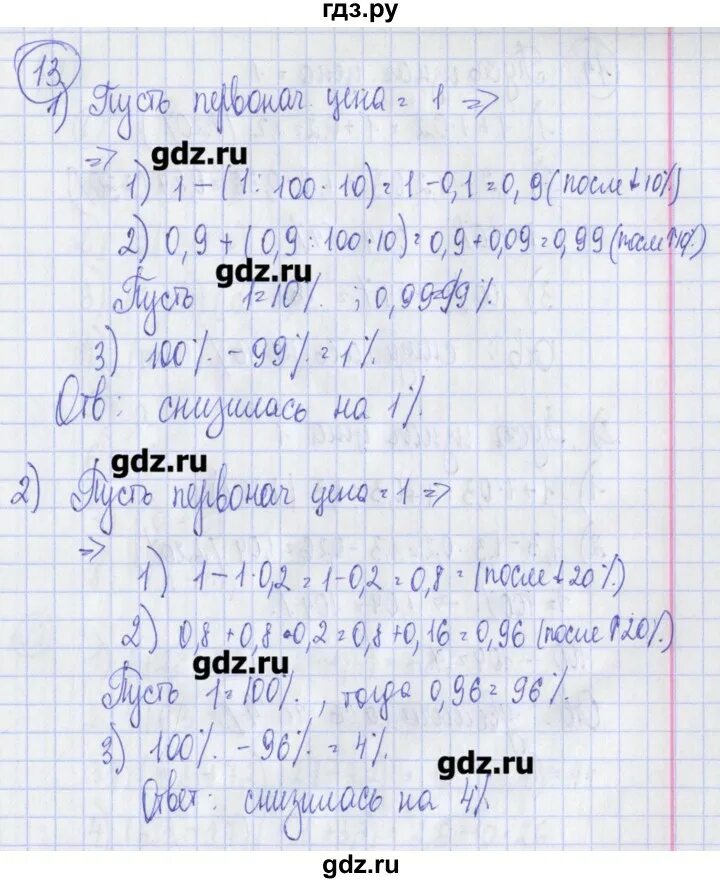 гдз.ру
13
1) Пусть первонач. цена = 1 =>
=> gdz.ru
1) 1 - (1 : 100 · 10) = 1 - 0,1 = 0,9 (после ↓ 10%)
2) 0,9 + (0,9 : 100 · 10) = 0,9 + 0,09 = 0,99 (после ↑ 10%)
gdz.ru
Пусть 1 = 10% ; 0,99 = 99%.
3) 100% - 99% = 1%.
Отв: снизилась на 1%.
gdz.ru
2) Пусть первонач цена = 1 =>
=>
1) 1 - 1·0,2 = 1 - 0,2 = 0,8 = (после ↓ 20%)
2) 0,8 + 0,8 · 0,2 = 0,8 + 0,16 = 0,96 (после ↑ 20%)
gdz.ru
Пусть 1 = 100%, тогда 0,96 = 96%.
3) 100% - 96% = 4%.
gdz.ru
Ответ: снизилась на 4%
gdz.ru